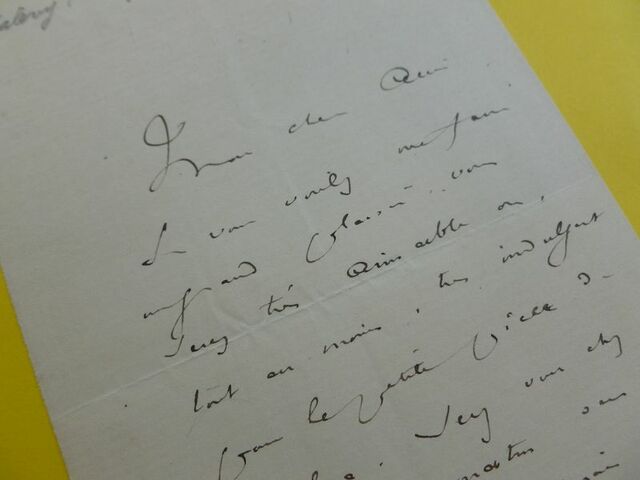 Mon cher Ami
Si vous voulez me faire
un grand plaisir, vous
serez très aimable ou,
tout au moins, très indulgent
pour la petite pièce de
Serez vous chez